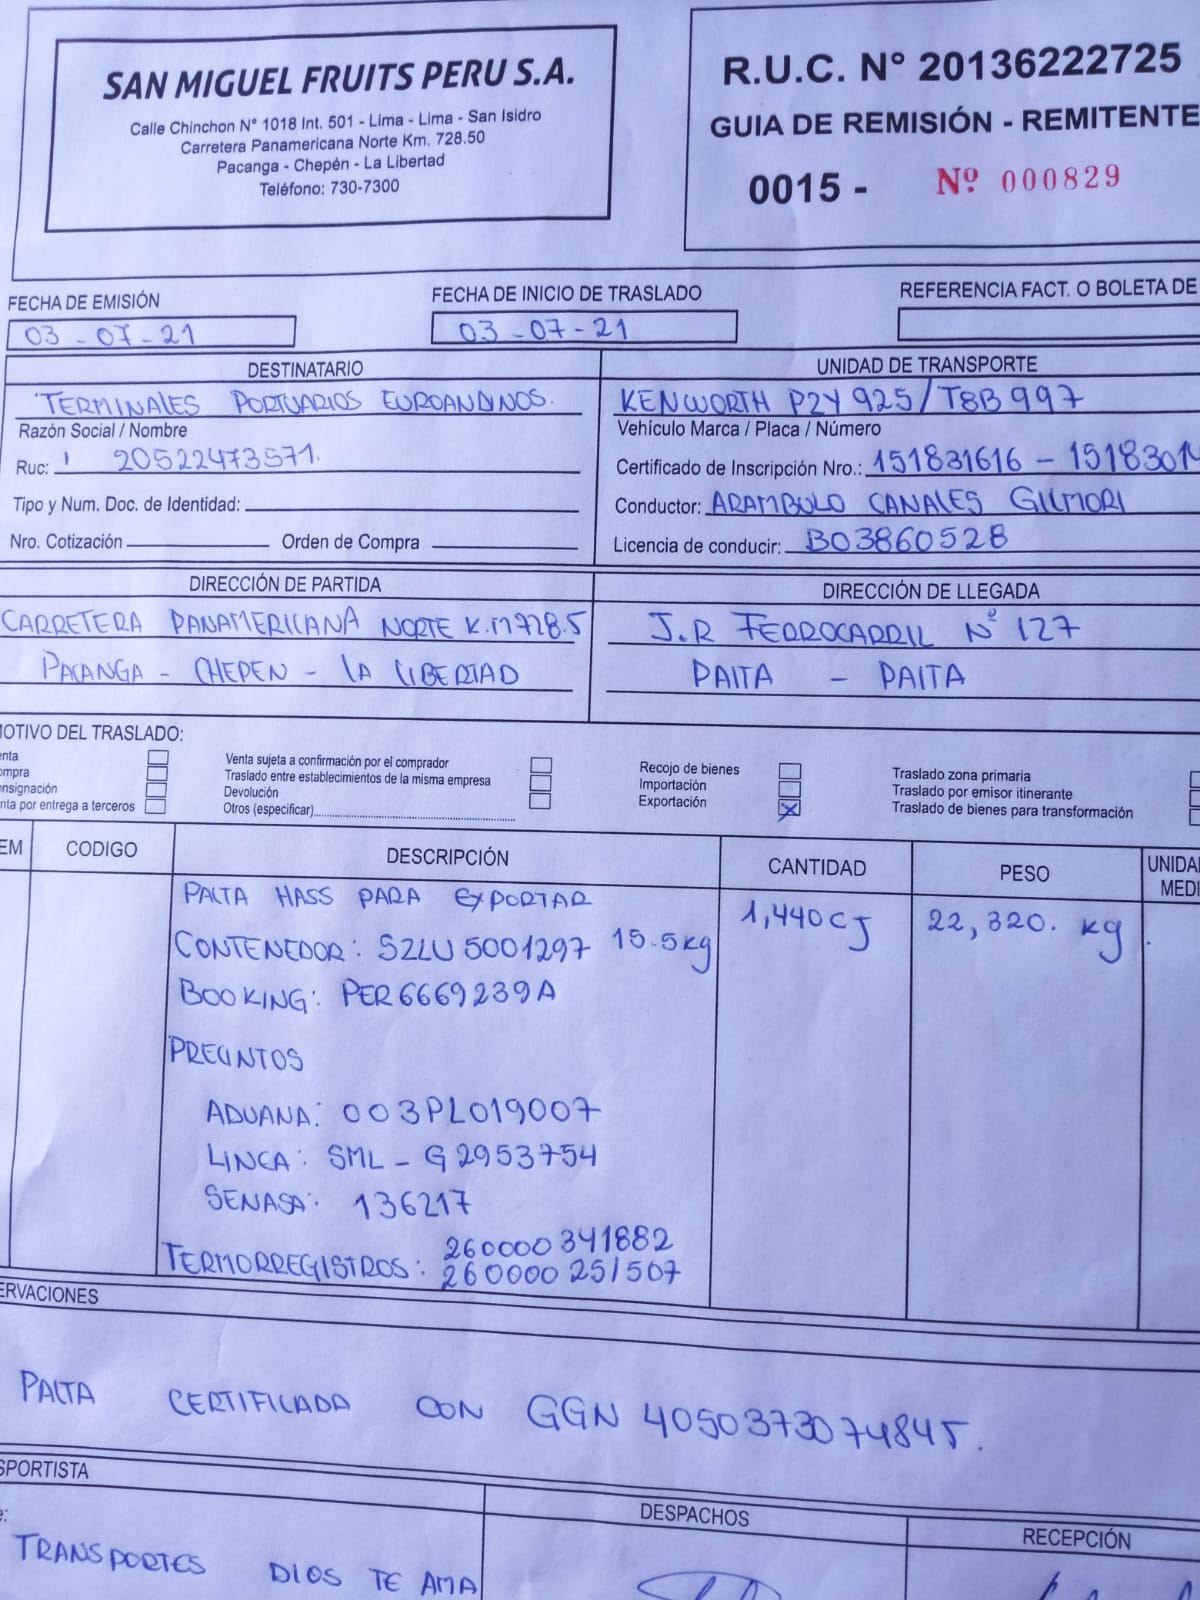 SAN MIGUEL FRUITS PERU S.A.
Calle Chinchon N° 1018 Int. 501 - Lima - Lima - San Isidro
Carretera Panamericana Norte Km. 728.50
Pacanga - Chepén - La Libertad
Teléfono: 730-7300
R.U.C. N° 20136222725
GUIA DE REMISIÓN - REMITENTE
0015 - Nº 000829
FECHA DE EMISIÓN
03-07-21
FECHA DE INICIO DE TRASLADO
03-07-21
REFERENCIA FACT. O BOLETA DE
DESTINATARIO
TERMINALES PORTUARIOS EUROANDINOS.
Razón Social / Nombre
Ruc: 20522473571.
Tipo y Num. Doc. de Identidad:
Nro. Cotización Orden de Compra
UNIDAD DE TRANSPORTE
KENWORTH P2Y 925/T8B 997
Vehículo Marca / Placa / Número
Certificado de Inscripción Nro.: 151831616 - 1518301
Conductor: ARAMBULO CANALES GILMORI
Licencia de conducir: B03860528
DIRECCIÓN DE PARTIDA
CARRETERA PANAMERICANA NORTE K.M728.5
PACANGA - CHEPEN - LA LIBERTAD
DIRECCIÓN DE LLEGADA
J.R FERROCARRIL Nº 127
PAITA - PAITA
MOTIVO DEL TRASLADO:
enta
ompra
onsignación
nta por entrega a terceros
Venta sujeta a confirmación por el comprador
Traslado entre establecimientos de la misma empresa
Devolución
Otros (especificar)
Recojo de bienes
Importación
Exportación X
Traslado zona primaria
Traslado por emisor itinerante
Traslado de bienes para transformación
EM CODIGO DESCRIPCIÓN CANTIDAD PESO UNIDA
MEDI
PALTA HASS PARA EXPORTAR 1,440CJ 22,320. kg
CONTENEDOR: SZLU 5001297 15.5kg
BOOKING: PER6669239A
PRECINTOS
ADUANA: 003PL019007
LINEA: SML - G2953754
SENASA: 136217
TERMORREGISTROS: 260000341882
260000251507
ERVACIONES
PALTA CERTIFICADA CON GGN 4050373074845.
SPORTISTA
DESPACHOS
RECEPCIÓN
e:
TRANSPORTES DIOS TE AMA